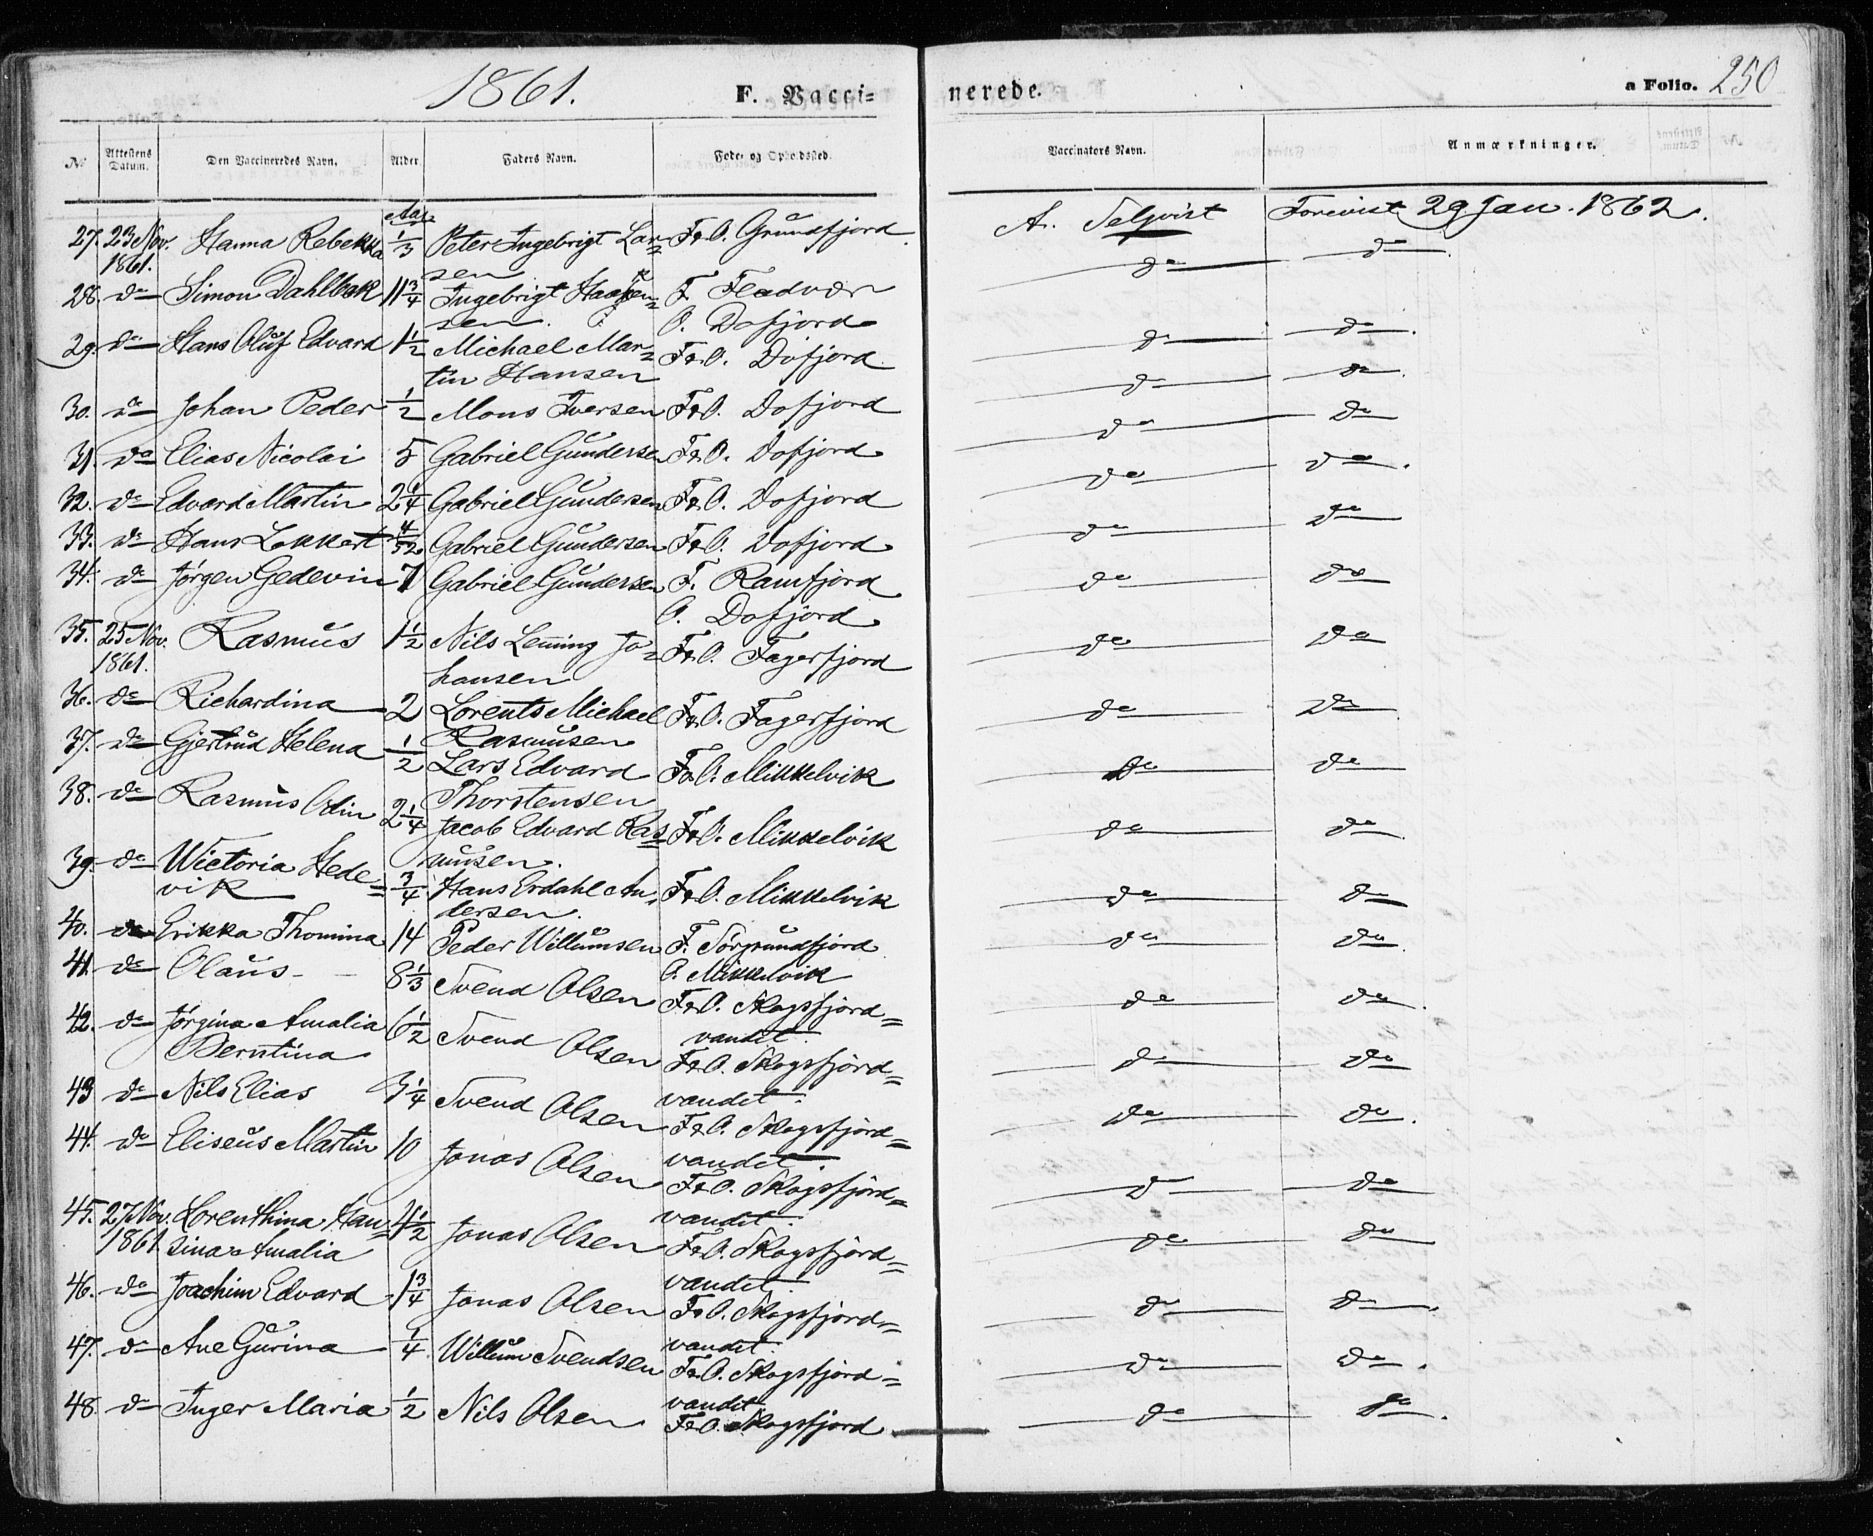 1861.
F. Vacci= nerede.
a Folio. 250
No Attestens Datum. Den Vaccineredes Navn. Alder Faders Navn. Føde- og Opholdssted. Vaccinators Navn. Anmærkninger.
Aar
27. 23 Nov. Hanna Rebekka 1/3 Peter Ingebrigt Lar= F&O. Grundfjord. A. Seljvist Forevist 29 Jan. 1862.
1861. sen do do
28. do Simon Dahlbak 11 3/4 Ingebrigt Haagen= F Fladvær
sen. O. Dofjord do do.
29. do Hans Oluf Edvard 1 1/2 Michael Mar= F&O. Dofjord
tin Hansen do do.
30. do Johan Peder 1/2 Mons Iversen F&O. Dofjord do do
31. do Elias Nicolai 5 Gabriel Gundersen F&O. Dofjord do do.
32. do Edvard Martin 2 1/4 Gabriel Gundersen F&O. Dofjord do do
33. do Hans Lokkert 4/52 Gabriel Gundersen F&O. Dofjord
34. do Jørgen Gedevin 7 Gabriel Gundersen F. Ramfjord do do
O. Dofjord
35. 25 Nov. Rasmus 1 1/2 Nils Lening Jo= F&O. Fagerfjord do do
1861. hansen
36. do Richardina 2 Lorents Michael F&O. Fagerfjord do do
Rasmusen
37. do Gjertrud Helena 1/2 Lars Edvard F&O. Mikkelvik do do
Thorstensen
38. do Rasmus Odin 2 1/4 Jacob Edvard Ras= F&O. Mikkelvik do do
musen.
39. do Wictoria Hede= 3/4 Hans Erdahl An= F&O. Mikkelvik do do
vik dersen.
40. do Erikka Thomina 14 Peder Willumsen F. Sørgrundfjord do do.
O. Mikkelvik
41. do Olaus - - 8 1/3 Svend Olsen F&O. Skogsfjord= do do.
vandet.
42. do Jørgina Amalia 6 1/2 Svend Olsen F&O. Skogsfjord= do do
Berntina vandet.
43 do Nils Elias 3 1/4 Svend Olsen F&O. Skogsfjord= do do.
vandet.
44. do Eliseus Martin 10 Jonas Olsen F&O. Skogsfjord= do do
vandet.
45. 27 Nov. Lorenthina Han= 4 1/2 Jonas Olsen F&O. Skogsfjord= do do
1861 sina Amalia vandet.
46. do Joachim Edvard 1 3/4 Jonas Olsen F&O. Skogsfjord= do do.
vandet.
47. do Ane Gurina 1/4 Willum Svendsen F&O. Skogsfjord= do do.
vandet
48. do Inger Maria 1/2 Nils Olsen F&O. Skogsfjord do do.